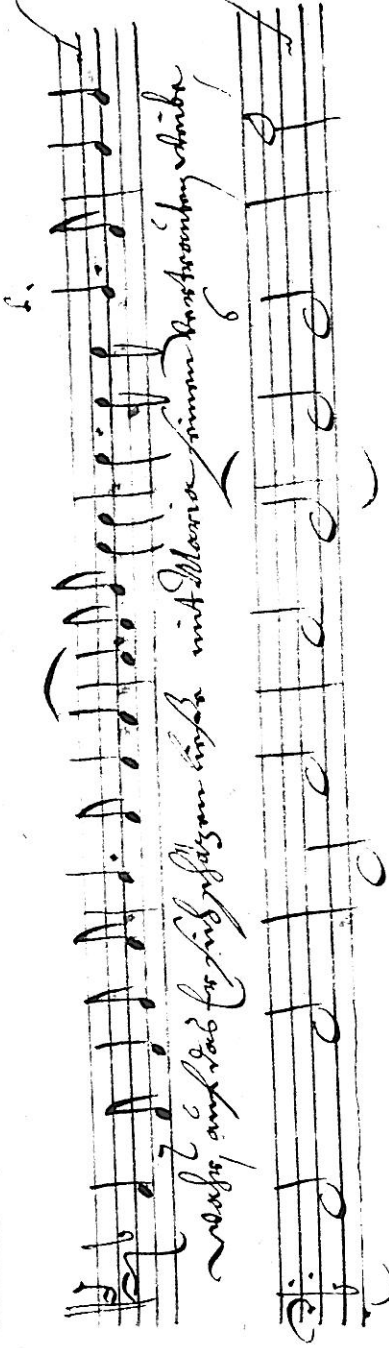 war, auf das er sich schätzen ließe mit Maria seinem vertrauten Weibe
6